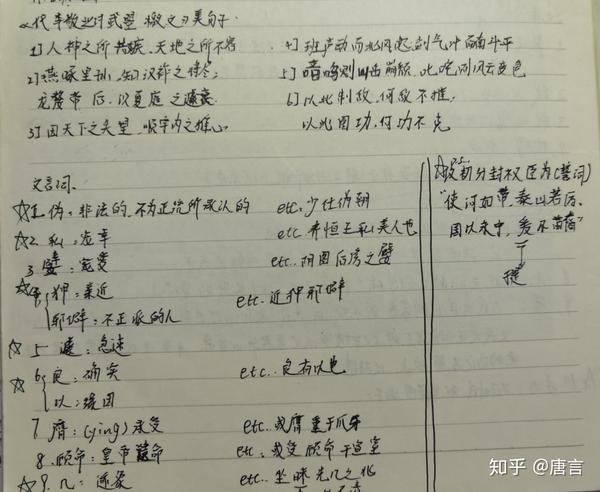 《代李敬业讨武曌檄文》美句子
1] 人神之所共嫉、天地之所不容
2] 燕啄皇孙,知汉祚之将尽;
龙漦帝后,识夏庭之遽衰
3] 因天下之失望,顺宇内之推心
4] 班声动而北风起,剑气冲而南斗平
5] 喑呜则山岳崩颓,叱咤则风云变色
6] 以此制敌,何敌不摧,
以此图功,何功不克
文言词。
☆1. 伪:非法的,不为正统所承认的 etc. 少仕伪朝
☆2. 私:宠幸 etc. 弗恒王私美人也
3. 嬖:宠爱 etc. 阴图后房之嬖
☆4. 狎:亲近 etc. 近狎邪僻
邪僻:不正派的人
☆ 5. 遽:急速
☆ 6. 良:确实 etc. 良有以也
以:缘因
7. 膺:(ying) 承受 etc. 或膺重于爪牙
8. 顾命:皇帝遗命 etc. 或受顾命于宣室
☆9. 几:迹象 etc. 坐昧先几之兆
☆汉初分封权臣为(誓词)
"使河如带,泰山若厉。
国以永宁,爰及苗裔"
知乎 @唐言